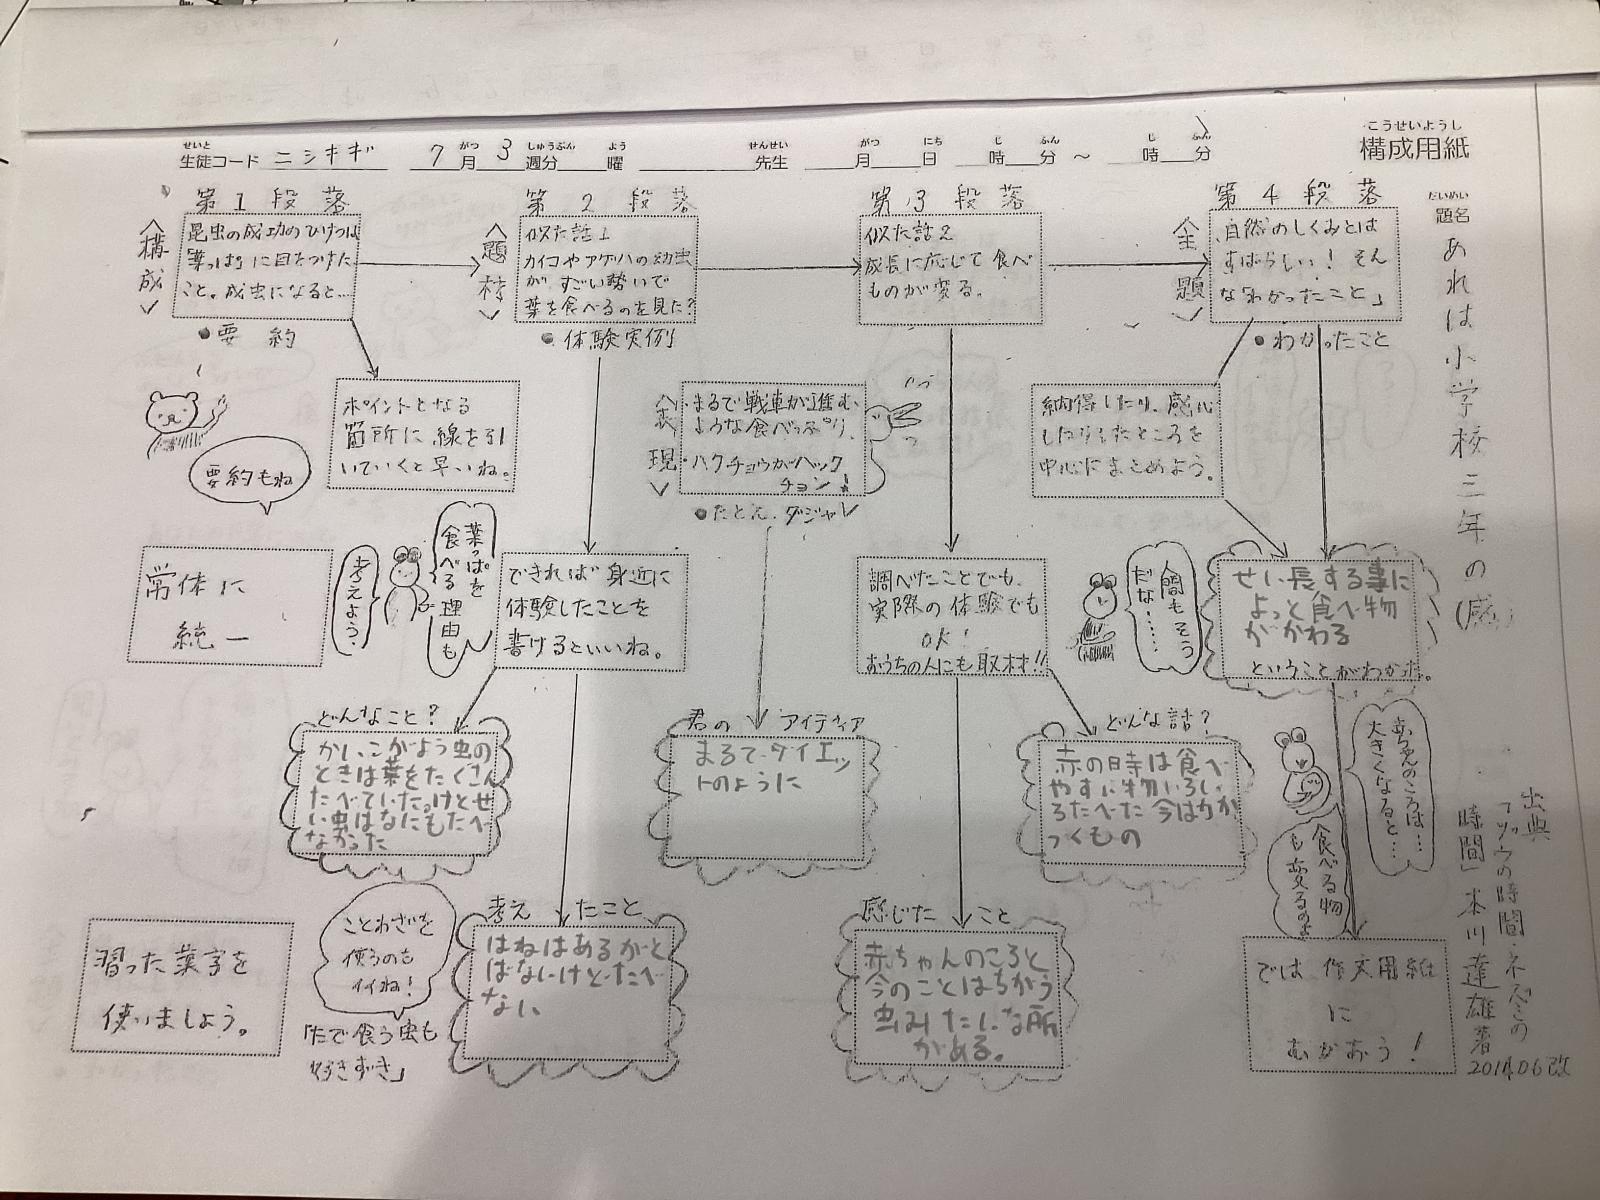 構成用紙
こうせいようし
生徒コード ニシキギ 7月3週分 曜 先生 月 日 時 分 ～ 時 分
せいと がつ しゅうぶん よう せんせい がつ にち じ ふん じ ふん
題名
だいめい
あれは小学校三年の(感)
第1段落
<構成>
昆虫の成功のひけつは
「葉っぱ」に目をつけた
こと。成虫になると…
●要約
ポイントとなる
箇所に線を引
いていくと早いね。
要約もね
常体に
統一
習った漢字を
使いましょう。
第2段落
<題材>
似た話1
カイコやアゲハの幼虫
がすごい勢いで
葉を食べるのを見た?
●体験実例
葉っぱを
食べる理由も
考えよう。
できれば身近に
体験したことを
書けるといいね。
どんなこと?
かいこがよう虫の
ときは葉をたくさん
たべていた。けどせ
い虫はなにもたべ
なかった
ことわざを
使うのも
イイね!
「たで食う虫も
好きずき」
考えたこと
はねはあるがと
ばないけどたべ
ない
<表現>
・まるで戦車が進む
ような食べっぷり。
・ハクチョウがハック
チョン!
●たとえ、ダジャレ
君のアイディア
まるでダイエッ
トのように
第3段落
似た話2
成長に応じて食べ
ものが変る。
調べたことでも、
実際の体験でも
OK!
おうちの人にも取材!!
どんな話?
赤の時は食べ
やすい物いろい
ろたべた今は力が
つくもの
感じたこと
赤ちゃんのころと
今のことはちがう
虫みたいな所
がある。
第4段落
<主題>
「自然のしくみとは
すばらしい! そん
なわかったこと」
●わかったこと
納得したり、感心
したりしたところを
中心にまとめよう。
人間もそう
だな……
せい長する事に
よっと食べ物
がかわる
ということがわかった。
赤ちゃんのころは…
大きくなると…
食べる物
も変るのよ
では作文用紙
に
むかおう!
出典
「ゾウの時間・ネズミの
時間」本川達雄著
2014.06改